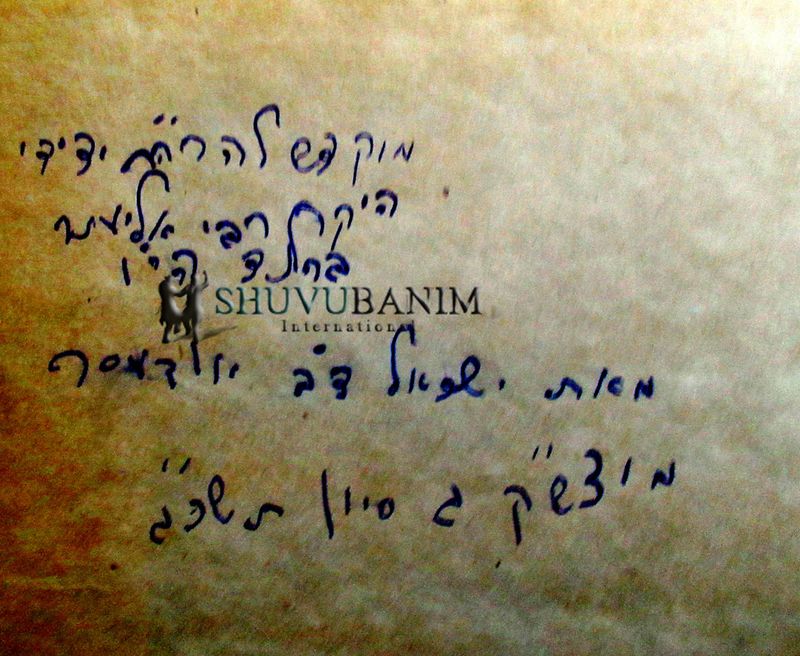 מוקדש להרה"ח ידידי
היקר רבי אליעזר
ברלנד הי"ו
SHUVUBANIM
International
מאת ישראל דב אודעסר
מוצש"ק ג סיון תשכ"ג